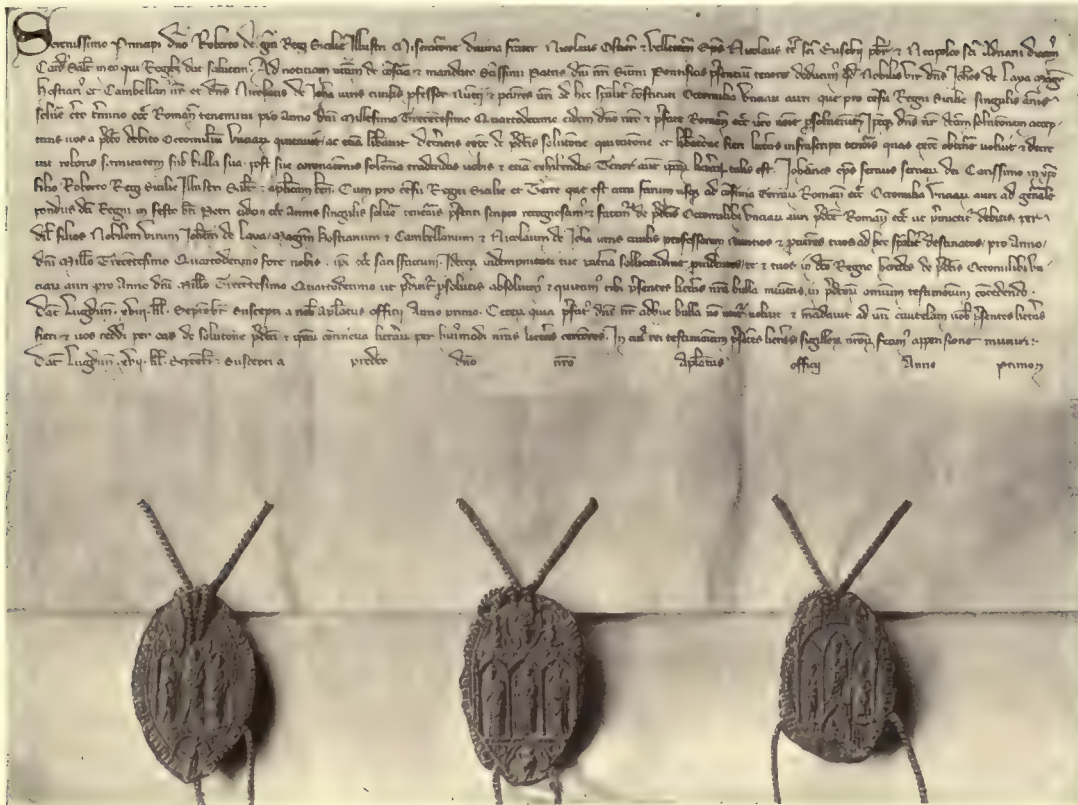 Serenissimo Principi dno Roberto dei gra Regi Sicilie Illustri Miseratione divina frater Nicolaus Ostien & Velletren Epus Nicolaus tt sci Eusebij pbr & Neapoleo sci Adriani diacon
Card Salt in eo qui Regibus dat salutem Ad noticiam vram de conscia et mandato Sanctissimi Patris dni nri Summi Pontificis psentium tenore deducimus qd Nobilis vir dns Johes de Laya Magr
Hostiari et Cambellan nr et dns Nicolaus de Joha iuris civilis pfessor Nuncij & pcuratores vri ad hec spaliter constituti Octomilia Unciar auri que pro censu Regni Sicilie singulis annis
solvere certo termino eccle Romane tenemini pro Anno dni Millesimo Trecentesimo Quartodecimo eidem dno nro & pfate Romane eccle vro noie psolverunt Ipseq dns nr dcam solutionem accep
tans vos a pdcto debito Octomilium Unciar quitavit ac etiam liberavit decernens certe de pdcis solutione quitatione et liberatione fieri licteras infrascripti tenoris quas
suam roboris firmitatem sub bulla sua post sue coronationis solemnia tradendas vobis & etiam exhibendas Tenor autem ipsarum licterar talis est Johannes epus servus servor dei Carissimo in xpo
filio Roberto Regi Sicilie Illustri Salt & aplicam ben Cum pro censu Regni Sicilie et Terre que est citra farum usq ad confinia terrarum Romane eccle Octomilia Unciar auri ad generale
pondus dci Regni in festo bti Petri eidem eccle Annis singulis solvere tenearis psenti scripto recognoscimus & fatemur de pdcis Octomilibus Unciar auri pdce Romane eccle ut pmictitur debitis per
dil filios Nobilem virum Johem de Laya Magrm Hostiarium & Cambellanum & Nicolaum de Joha iuris civilis professorem nuncios & pcuratores tuos ad hec spaliter destinatos pro Anno
dni Millo Trecentesimo Quartodecimo fore nobis ipi eccle satisfactum Ideoq indempnitati tue volentes sollicitudine providere te & tuos in dco Regno heredes de pdcis Octomilibus Un
ciar auri pro Anno dni Millo Trecentesimo Quartodecimo ut pmictitur psolutis absolvimus & quitamus tibi psentes licteras nra bulla munitas in pdcorum omnium testimonium concedendo
Dat Lugduni xviij kl Septembr suscepti a nob aplatus officij Anno primo Ceterum quia pfatus dns nr adhuc bulla no utitur voluit & mandavit ad vram cautelam nob psentes licteras
fieri & vos reddi per eas de solutione pdcta & quod continetur licterar per huiusmodi nras licteras certiores In cuius rei testimonium psentes licteras sigillorum nrorum fecimus appensione muniri
Dat Lugduni xvij kl Septembr Suscepti a predco dno nro Aplatus officij Anno primo